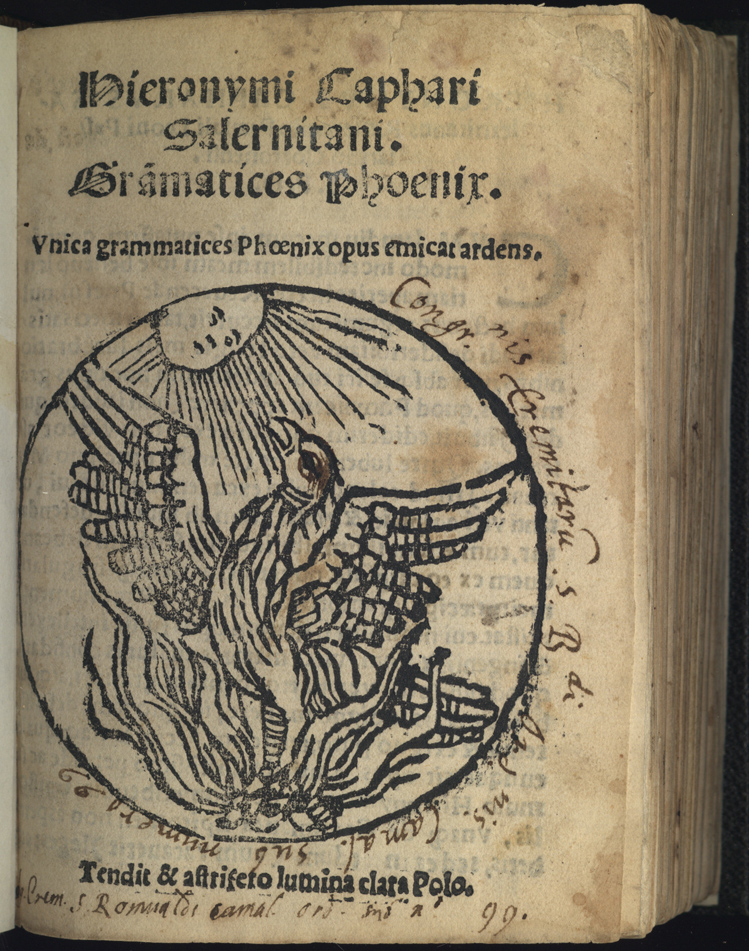 Hieronymi Caphari
Salernitani.
Grãmatices Phoenix.
Vnica grammatices Phœnix opus emicat ardens.
Congr. nis Eremitarũ S B di
Camal. sub numero 92
Tendit & astrifero lumina clara Polo.
Erem. S. Romualdi Camal. Ord. sub nº 99.